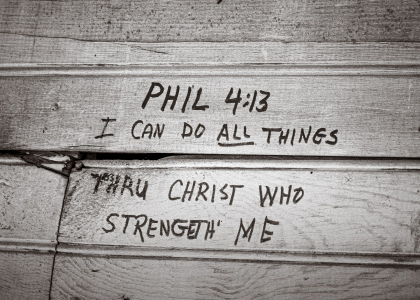 PHIL 4:13
I CAN DO ALL THINGS
THRU CHRIST WHO
STRENGETH' ME